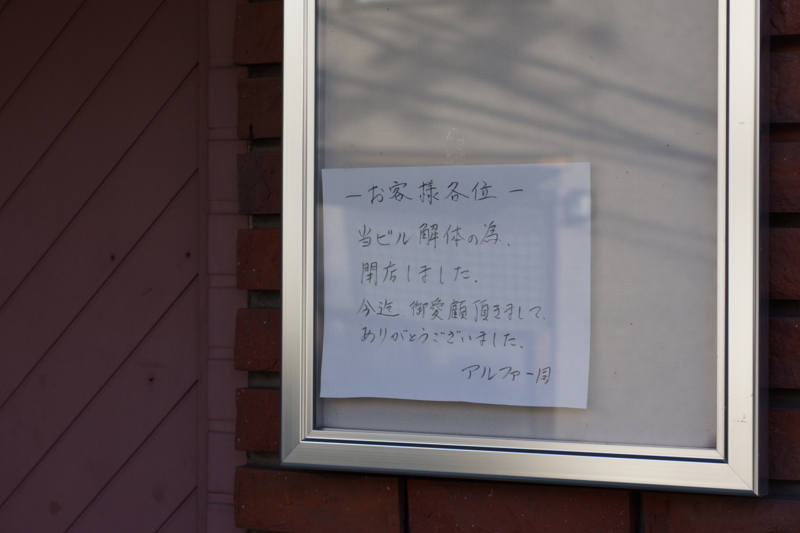 －お客様各位－
当ビル解体の為、
閉店しました。
今迄 御愛顧頂きまして、
ありがとうございました。
アルファ一同